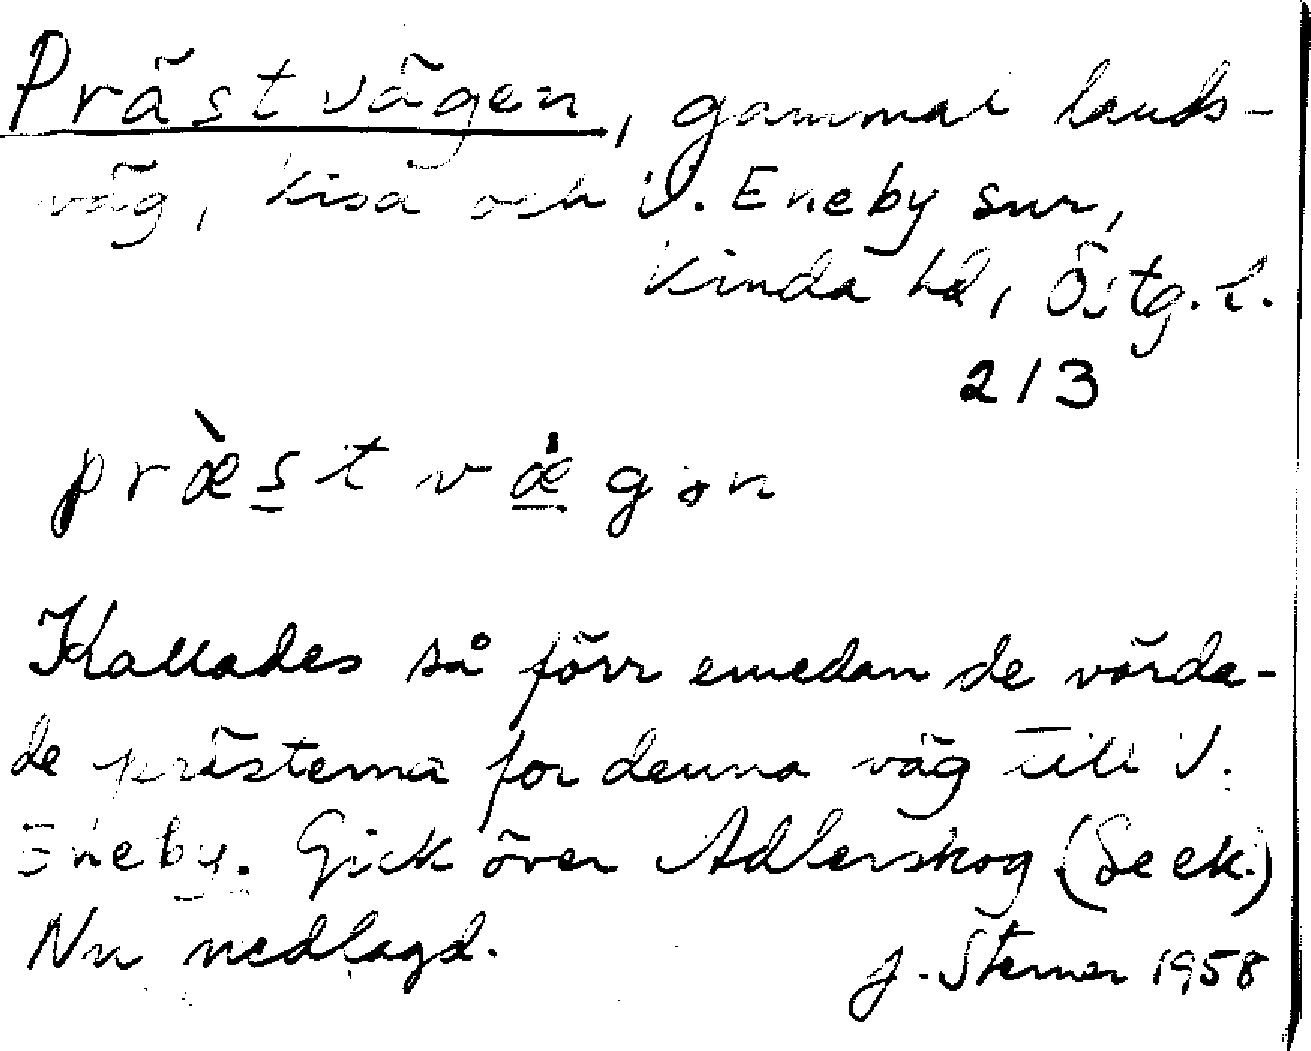 Prästvägen, gammal lands-
väg, Kisa och V. Eneby snr,
Kinda hd, Östg. l.
213
præstvægən
Kallades så förr emedan de vörda-
de prästerna for denna väg till V.
Eneby. Gick över Adlerskog (Se ek.)
Nu nedlagd.
J. Sterner 1958